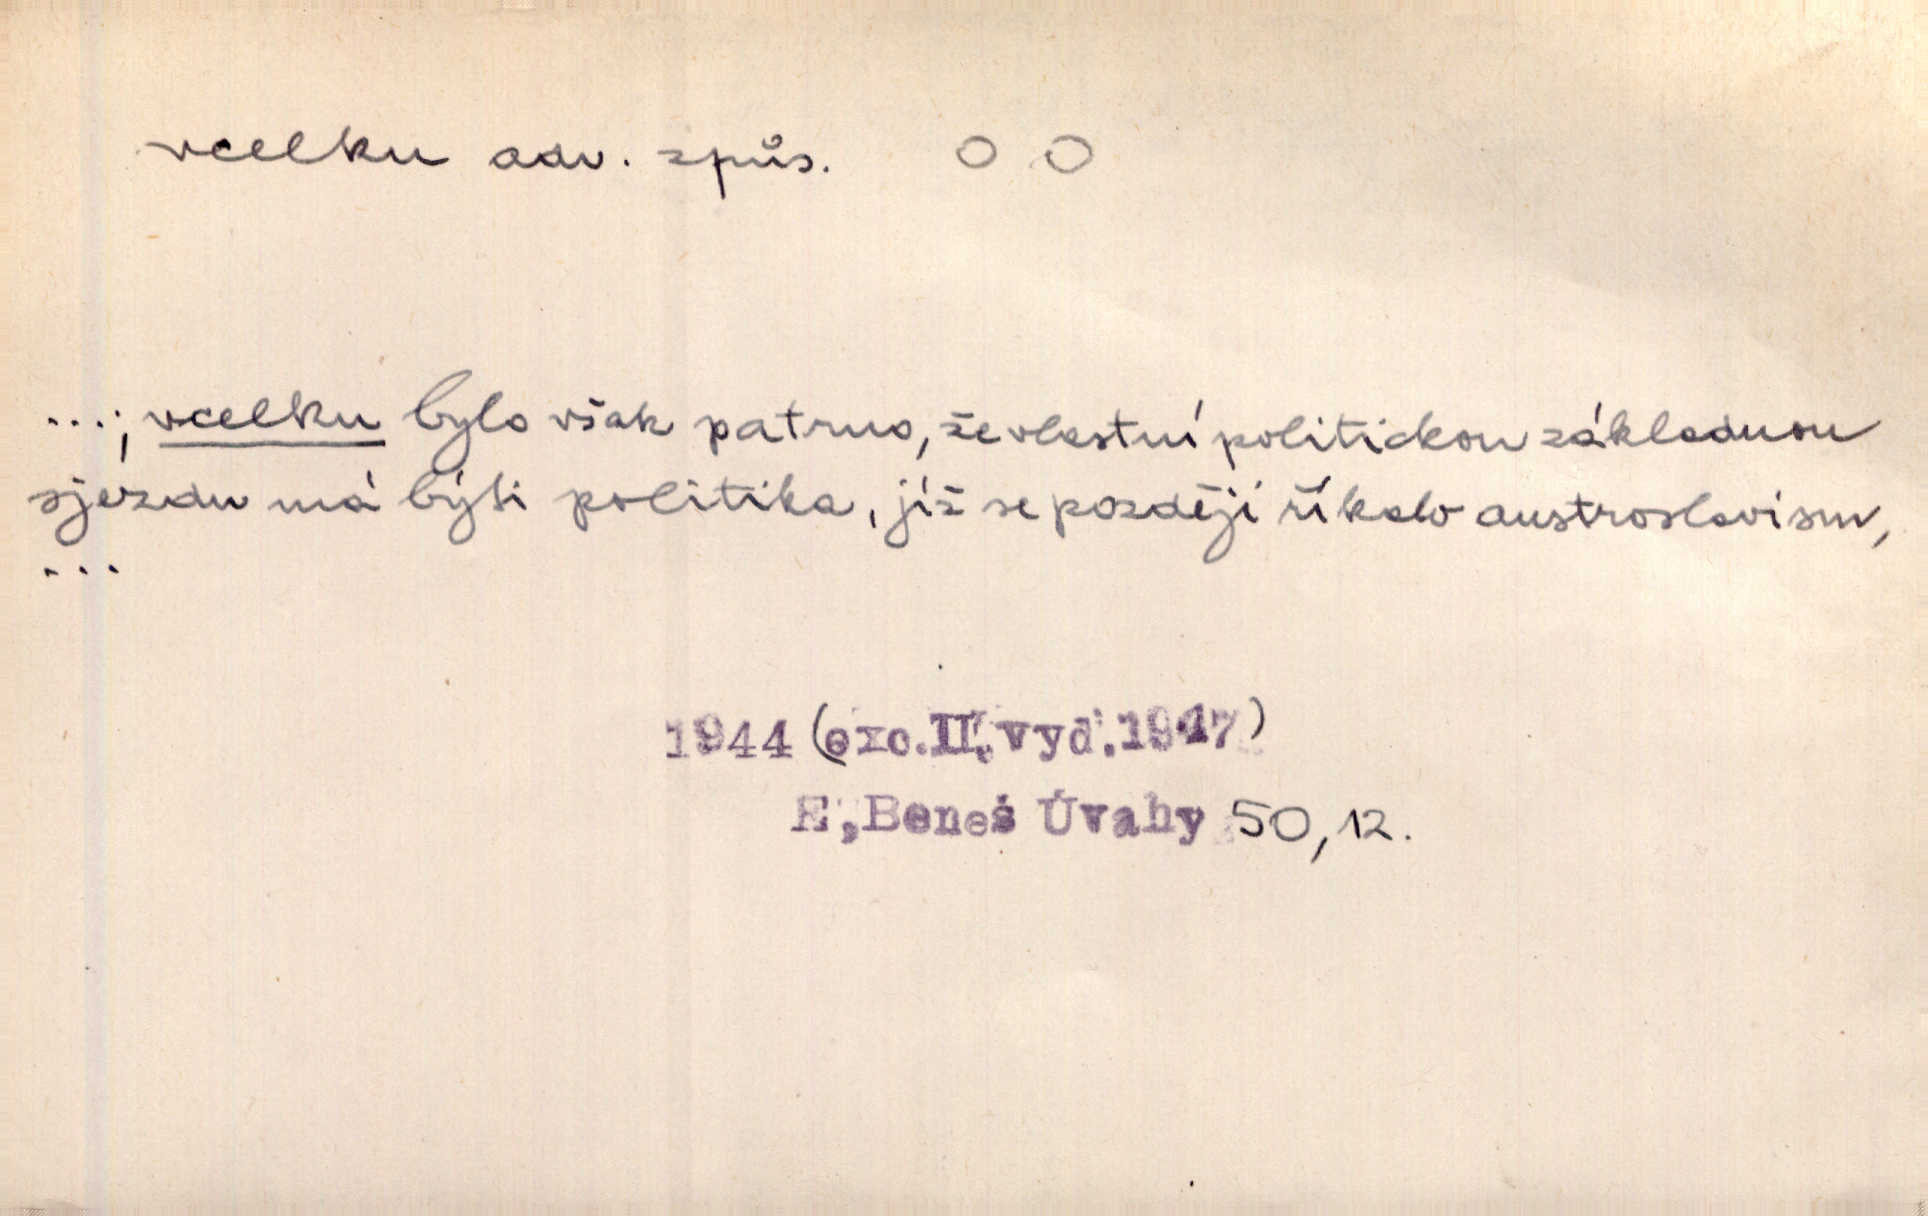 vcelku adv. způs. O O
...; vcelku bylo však patrno, že vlastní politickou základnou
sjezdu má býti politika, jíž se později říkalo austroslavism,
...
1944 (exc. II. vyd. 1947)
E. Beneš Úvahy 50, 12.